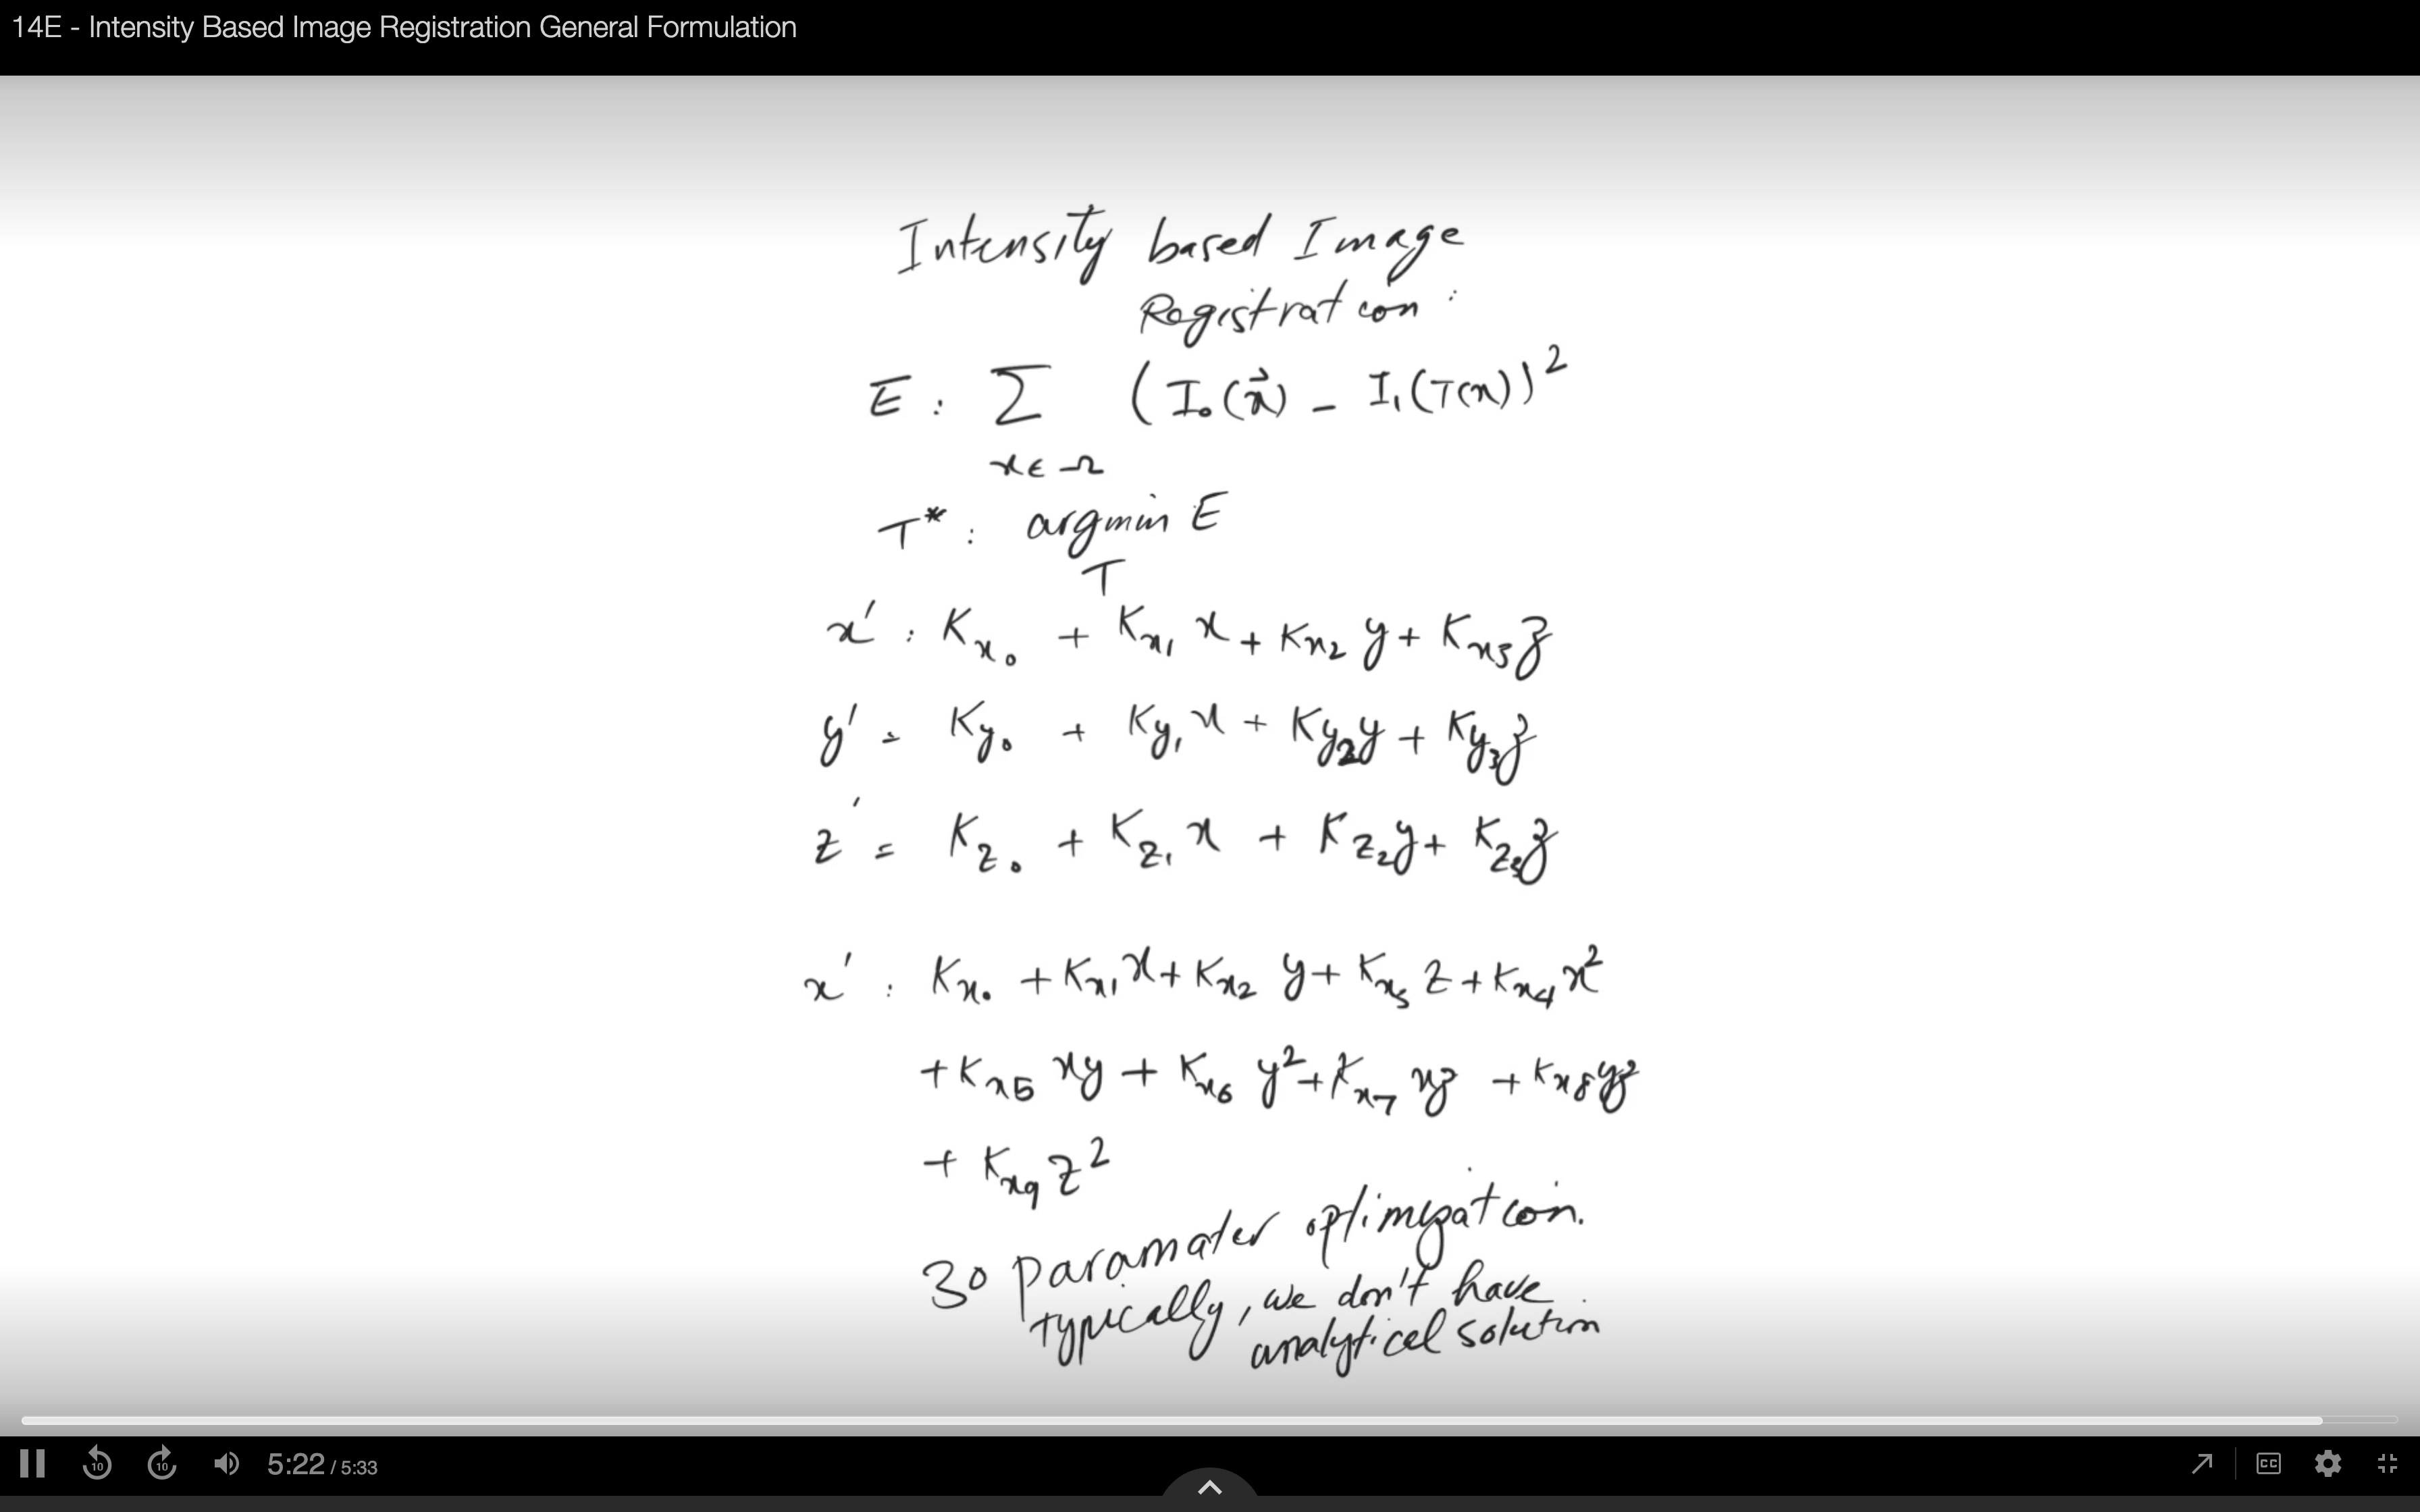 14E - Intensity Based Image Registration General Formulation
Intensity based Image
Registration :
E : Σ (I₀(x⃗) - I₁(T(x))²
x ∈ Ω
T* : argmin E
T
x' : Kx₀ + Kx₁ x + Kx₂ y + Kx₃ z
y' = Ky₀ + Ky₁ x + Ky₂ y + Ky₃ z
z' = Kz₀ + Kz₁ x + Kz₂ y + Kz₃ z
x' : Kx₀ + Kx₁ x + Kx₂ y + Kx₃ z + Kx₄ x²
+ Kx₅ xy + Kx₆ y² + Kx₇ xz + Kx₈ yz
+ Kx₉ z²
30 paramater optimization.
typically, we don't have
analytical solution
10 10 5:22 / 5:33 CC